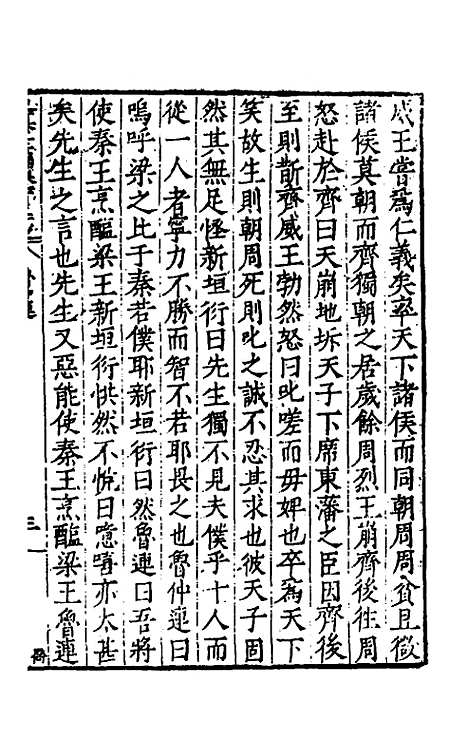 威王嘗爲仁義矣率天下諸侯而同朝周周貧且微
諸侯莫朝而齊獨朝之居歲餘周烈王崩齊後徃周
怒赴於齊曰天崩地坼天子下席東藩之臣因齊後
至則斮齊威王勃然怒曰叱嗟而毋婢也卒爲天下
笑故生則朝周死則叱之誠不忍其求也彼天子固
然其無足怪新垣衍曰先生獨不見夫僕乎十人而
從一人者寧力不勝而智不若耶畏之也魯仲連曰
嗚呼梁之比于秦若僕耶新垣衍曰然魯連曰吾將
使秦王烹醢梁王新垣衍怏然不悅曰噫嘻亦太甚
矣先生之言也先生又惡能使秦王烹醢梁王魯連
三